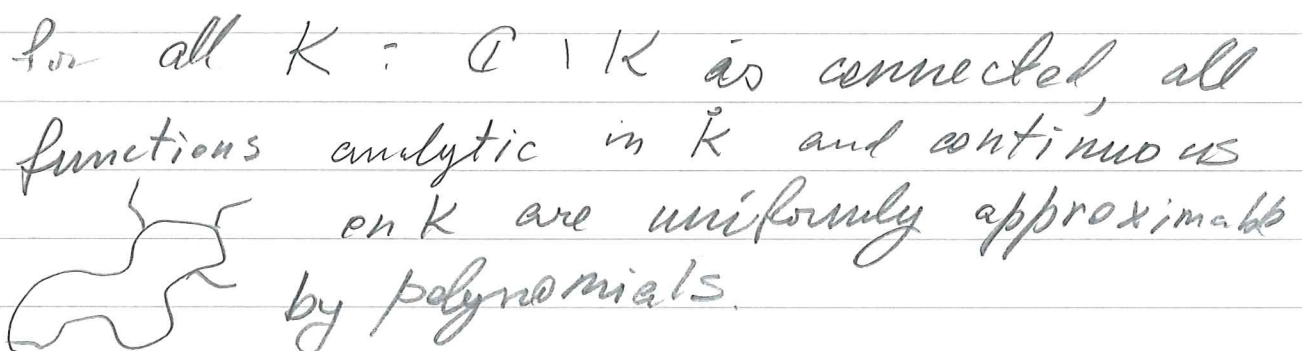 for all K : ℂ \ K is connected, all
functions analytic in K̊ and continuous
on K are uniformly approximable
by polynomials.